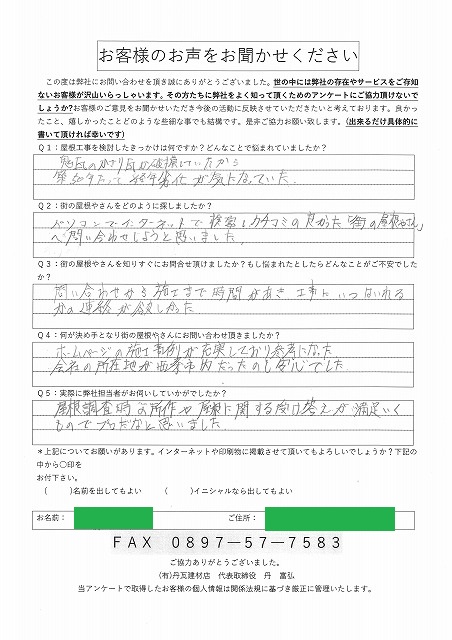 お客様のお声をお聞かせください
この度は弊社にお問い合わせを頂き誠にありがとうございました。世の中には弊社の存在やサービスをご存知
ないお客様が沢山いらっしゃいます。その方たちに弊社をよく知って頂くためのアンケートにご協力頂けないで
しょうか?お客様のご意見をお聞かせいただき今後の活動に反映させていただきたいと考えております。良かっ
たこと、嬉しかったことどのような些細な事でも結構です。是非ご協力お願い致します。(出来るだけ具体的に
書いて頂ければ幸いです)
Q１：屋根工事を検討したきっかけは何ですか？どんなことで悩まれていましたか？
のかざり瓦が破損していたから
築 年たって経年劣化が気になっていた.
Q２：街の屋根やさんをどのように探しましたか？
パソコンでインターネットで検索しクチコミの良かった「街の屋根やさん」
へ問い合わせしようと思いました。
Q３：街の屋根やさんを知りすぐにお問合せ頂けましたか？もし悩まれたとしたらどんなことがご不安でした
か？
問い合わせから施工まで時間があき 工事に いつはいれる
かの連絡が欲しかった
Q４：何が決め手となり街の屋根やさんにお問い合わせ頂きましたか？
ホームページの施工事例が充実しており参考になった
会社の所在地が西条市内だったのも安心でした
Q５：実際に弊社担当者がお伺いしていかがでしたか？
屋根調査時の所作や屋根に関する受け答えが満足いく
ものでプロだなと思いました.
＊上記についてお願いがあります。インターネットや印刷物に掲載させて頂いてもよろしいでしょうか？下記の
中から〇印を
お付下さい。
( )名前を出してもよい ( )イニシャルなら出してもよい
お名前： ご住所：
FAX 0897-57-7583
ご協力ありがとうございました。
(有)丹瓦建材店 代表取締役 丹 富弘
当アンケートで取得したお客様の個人情報は関係法規に基づき厳正に管理いたします。